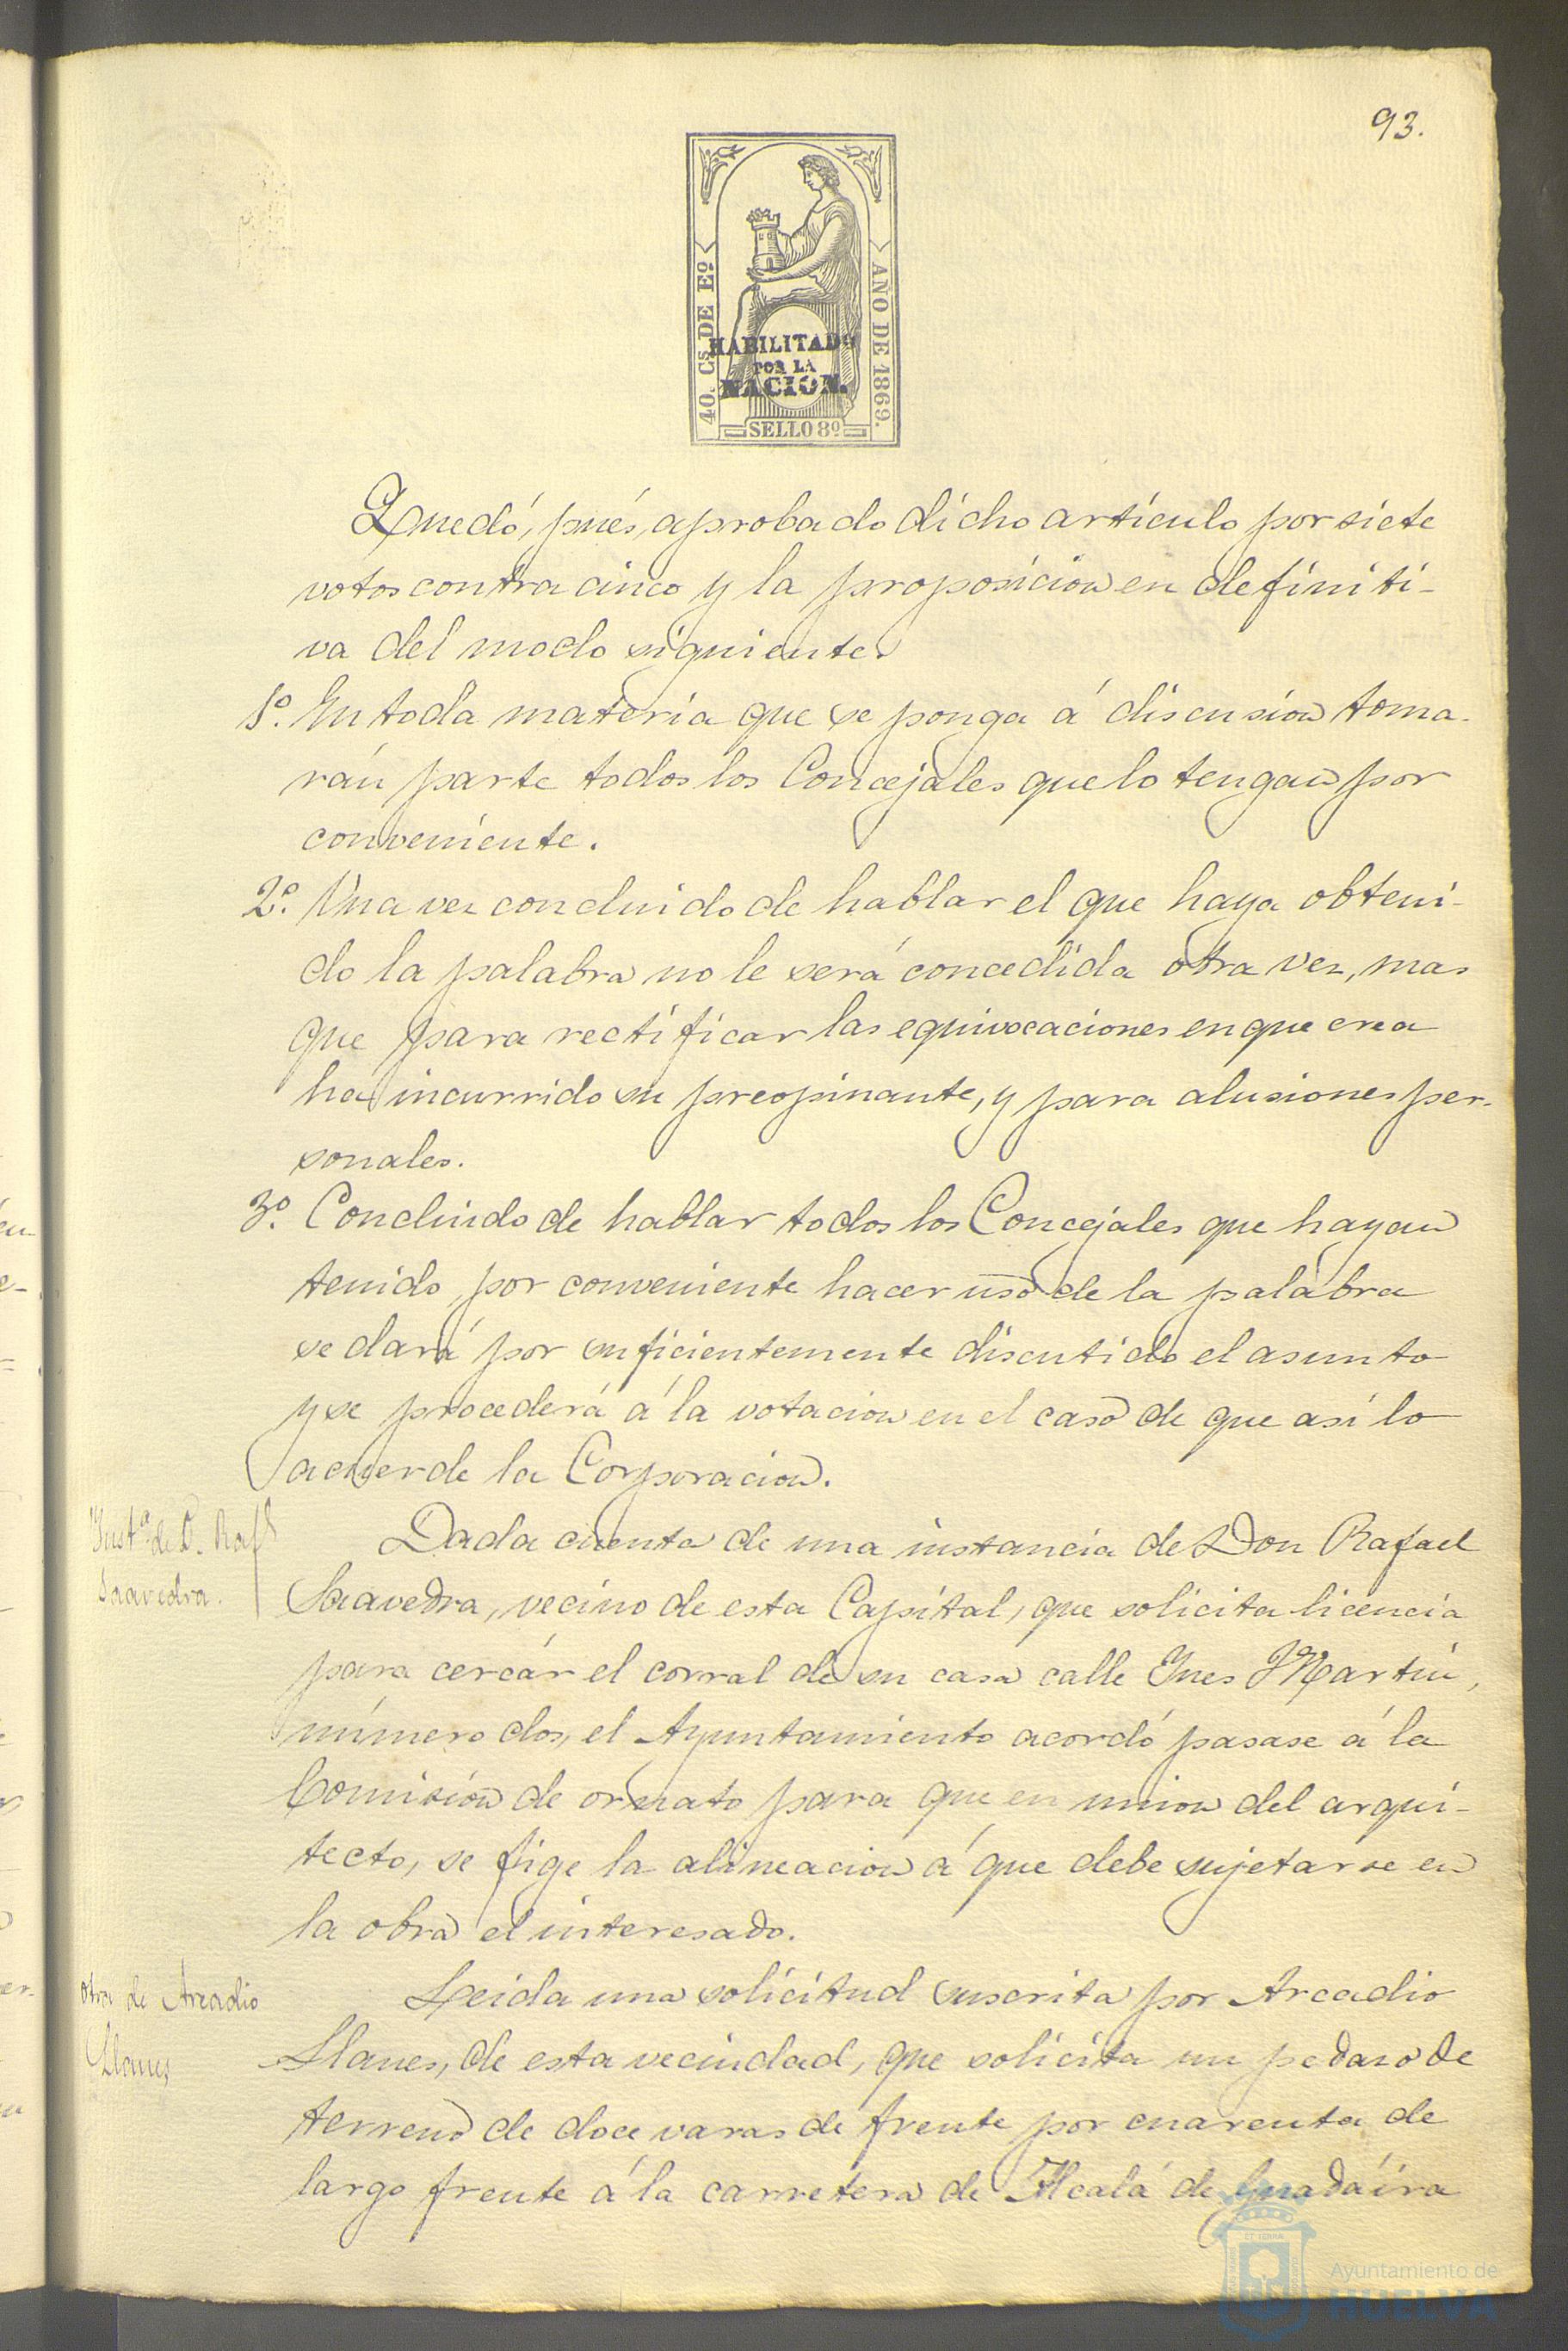 93.
40. Cs DE Eº
AÑO DE 1869.
HABILITADO
POR LA
NACION.
SELLO 8º
Quedó, pués, aprobado dicho artículo por siete
votos contra cinco y la proposicion en definiti-
va del modo siguiente.
1º. En toda materia que se ponga á discusion toma-
rán parte todos los Concejales que lo tengan por
conveniente.
2º. Una vez concluido de hablar el que haya obteni-
do la palabra no le será concedida otra vez, mas
que para rectificar las equivocaciones en que crea
ha incurrido su preopinante, y para alusiones per-
sonales.
3º. Concluido de hablar todos los Concejales que hayan
tenido por conveniente hacer uso de la palabra
se dará por suficientemente discutido el asunto
y se procederá á la votacion en el caso de que así lo
acuerde la Corporacion.
Inst.ª de D. Raf.l
Saavedra.
Dada cuenta de una instancia de Don Rafael
Saavedra, vecino de esta Capital, que solicita licencia
para cercár el corral de su casa calle Ynes Martin,
número dos, el Ayuntamiento acordó pasase á la
Comision de ornato para que en union del arqui-
tecto, se fige la alineacion á que debe sujetarse en
la obra el interesado.
Otra de Arcadio
Llanes
Leida una solicitud suscrita por Arcadio
Llanes, de esta vecindad, que solicita un pedazo de
terreno de doce varas de frente por cuarenta de
largo frente á la carretera de Alcalá de Guadáira
Ayuntamiento de
HUELVA